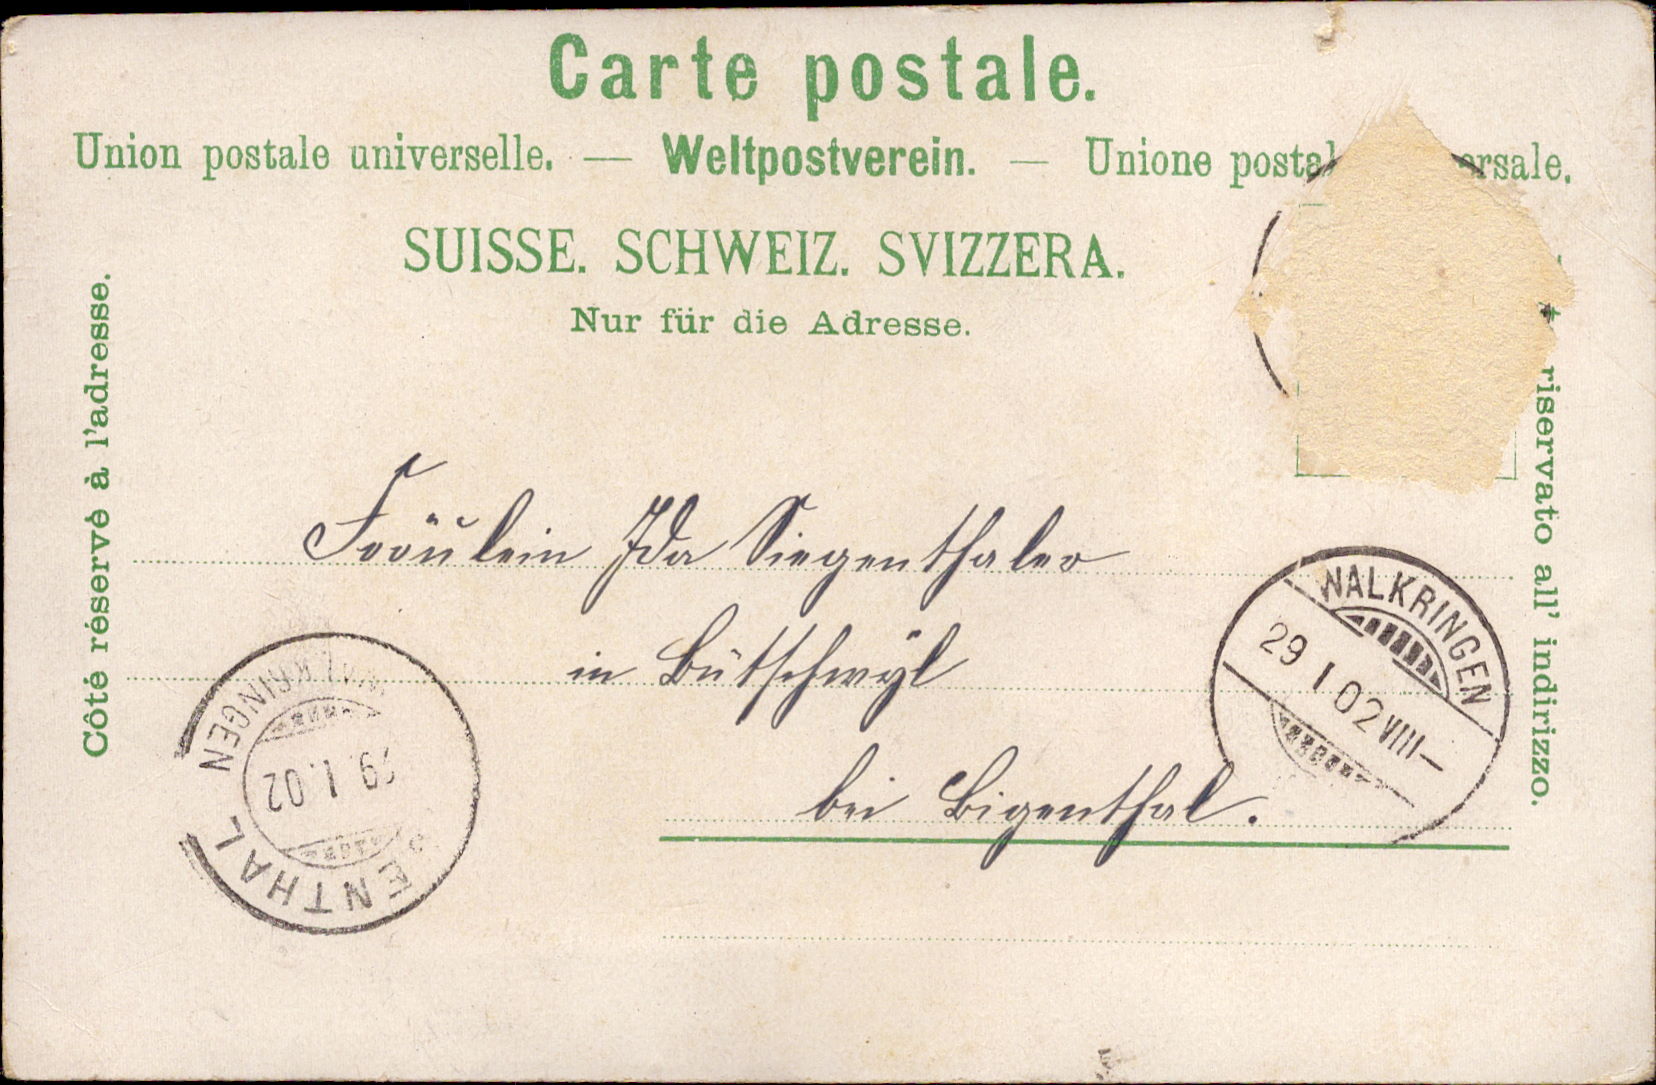 Carte postale.
Union postale universelle. — Weltpostverein. — Unione postal ersale.
SUISSE. SCHWEIZ. SVIZZERA.
Nur für die Adresse.
Côté réservé à l'adresse.
riservato all' indirizzo.
Fräulein Ida Siegenthaler
in Bütschwyl
bei Bigenthal.
WALKRINGEN
29 I 02 VIII—
WALKRINGEN
29. I. 02
ENTHAL